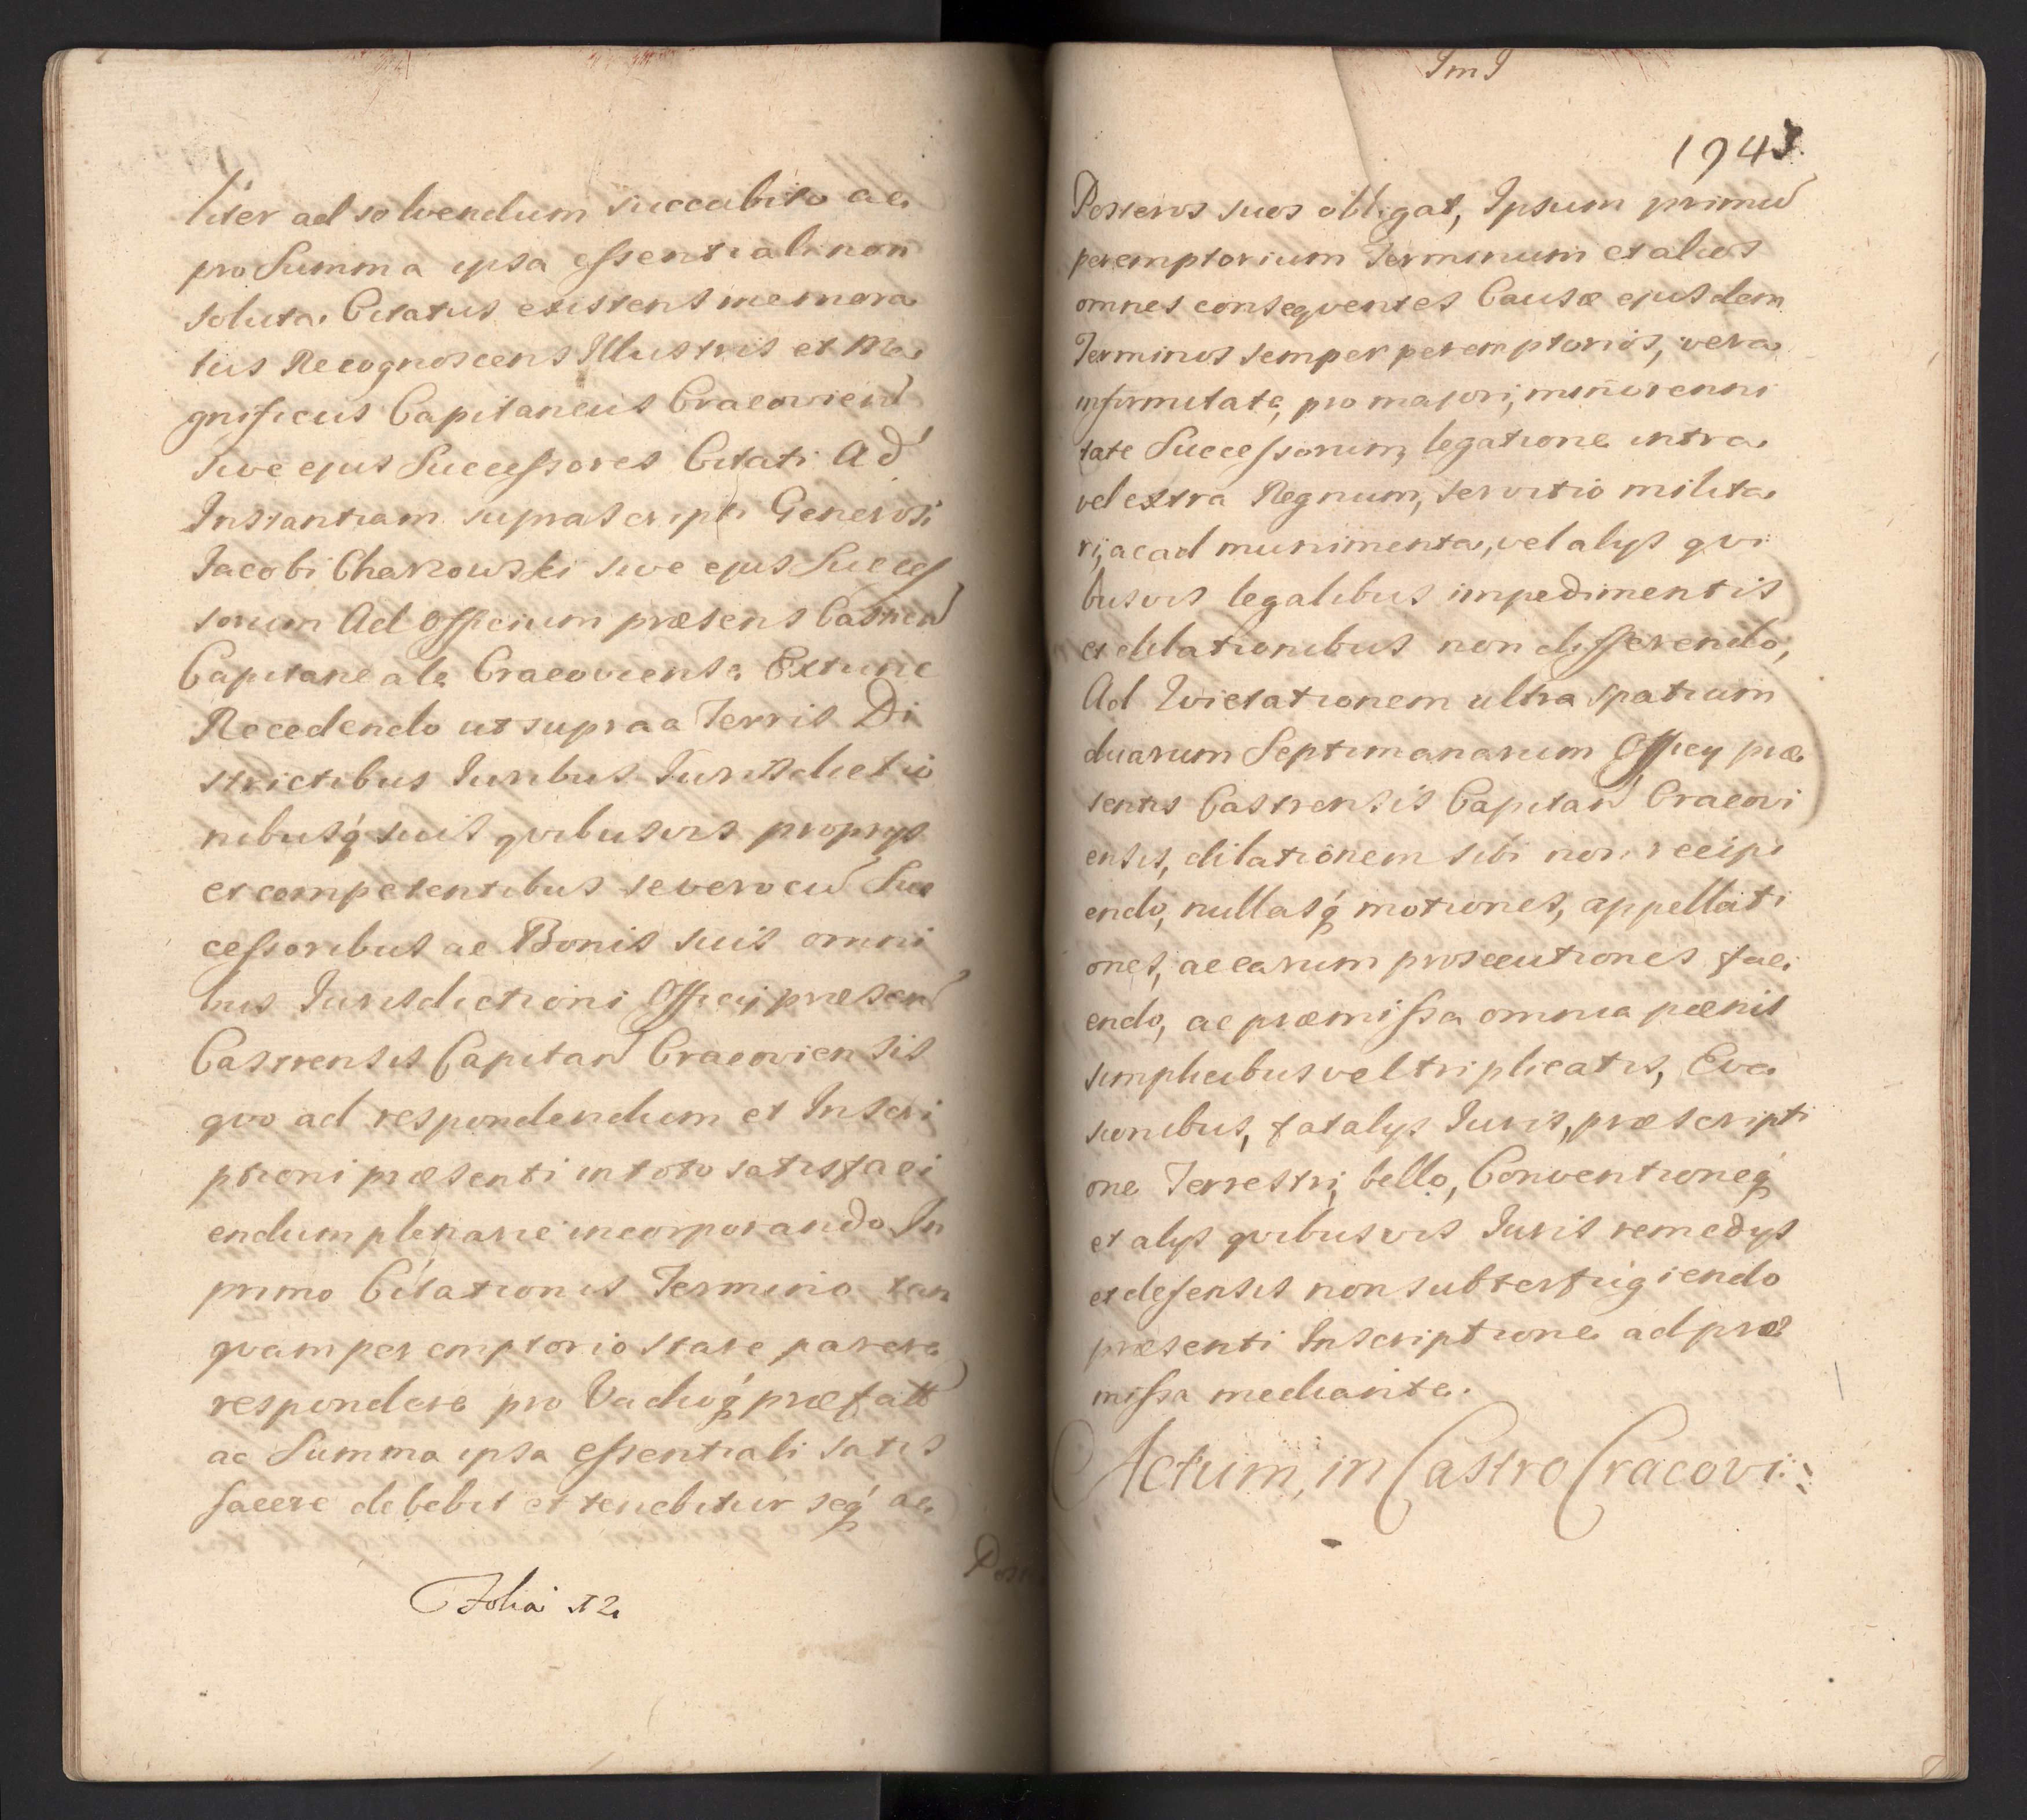 liter ad solvendum succubito ac
pro Summa ipsa essentiali non
soluta. Citatus existens memora
tus Recognoscens Illustris et Ma
gnificus Capitaneus Cracovien
sive ejus Successores Citati Ad
Instantiam suprascripti Generosi
Jacobi Chakowski sive ejus Succes
sorum Ad Officium præsens Castren
Capitaneale Cracoviense Extunc
Recedendo ut supra a Terris Di
strictibus Iuribus Iurisdictio
nibusq́ suis qvibusvis proprys
et competentibus se vero cum Suc
cessoribus ac Bonis suis omni
bus Iurisdictioni Officij præsen
Castrensis Capitan Cracoviensis
qvo ad respondendum et Inscri
ptioni præsenti in toto satisfaci
endum plenarie incorporando In
primo Citationis Termino tan
qvam peremptorio stare parere
respondere pro Vadioq́ præfatt
ac Summa ipsa essentiali satis
facere debebit et tenebitur seq́ ac
Folia 12
Pos
ImI
1943.
Posteros suos obligat, Ipsum primum
peremptorium Terminum et alios
omnes conseqventes Causæ ejusdem
Terminos semper peremptorios, vera
infirmitate, pro majori, minorenni
tate Successorum, legatione intra
vel extra Regnum, servitio milita
ri, ac ad munimenta, vel alys qvi
busvis legalibus impedimentis
et dilationibus non differendo,
Ad Evictationem ultra spatium
duarum Septimanarum Officy præ
sentis Castrensis Capitan Cracovi
ensis, dilationem sibi non recipi
endo, nullasq́ motiones, appellati
ones, ac earum prosecutiones faci
endo, ac præmissa omnia pænis
simplicibus vel triplicatis, Eva
sionibus, fatalys Iuris, præscripti
one Terrestri, bello, Conventioneq́
et alys qvibusvis Iuris remedys
et defensis non subterfugiendo
præsenti Inscriptione ad præ
missa mediante.
Actum, in Castro Cracovi: